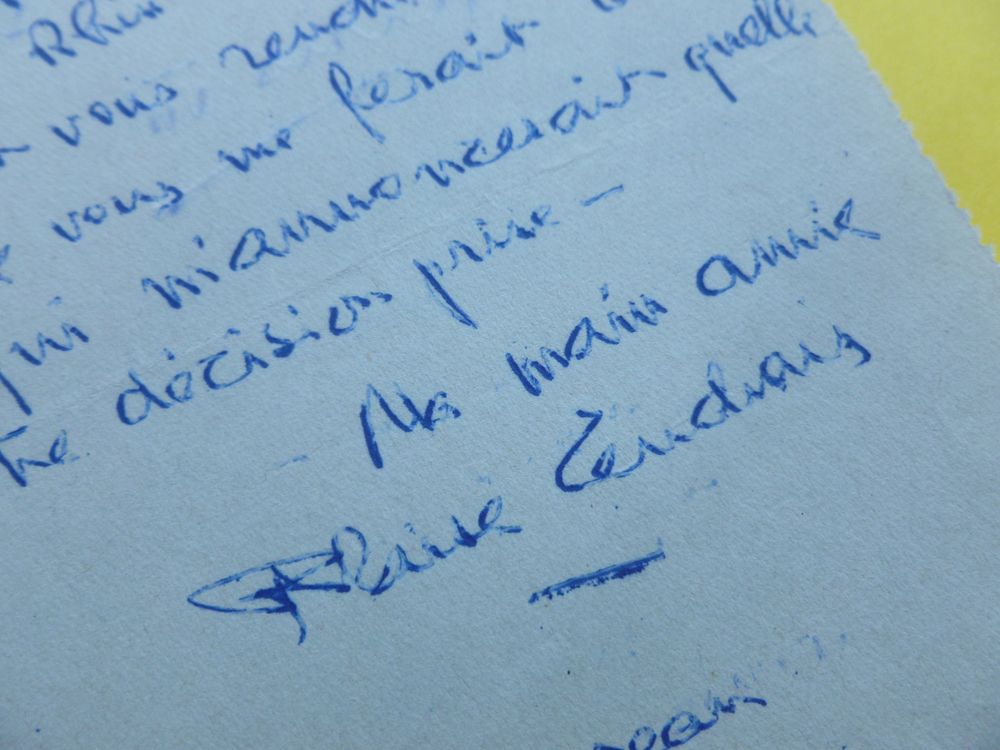 vous
vous me ferait
qui m'annoncerait quelle
décision prise —
- Ma main amie
Blaise Cendrars